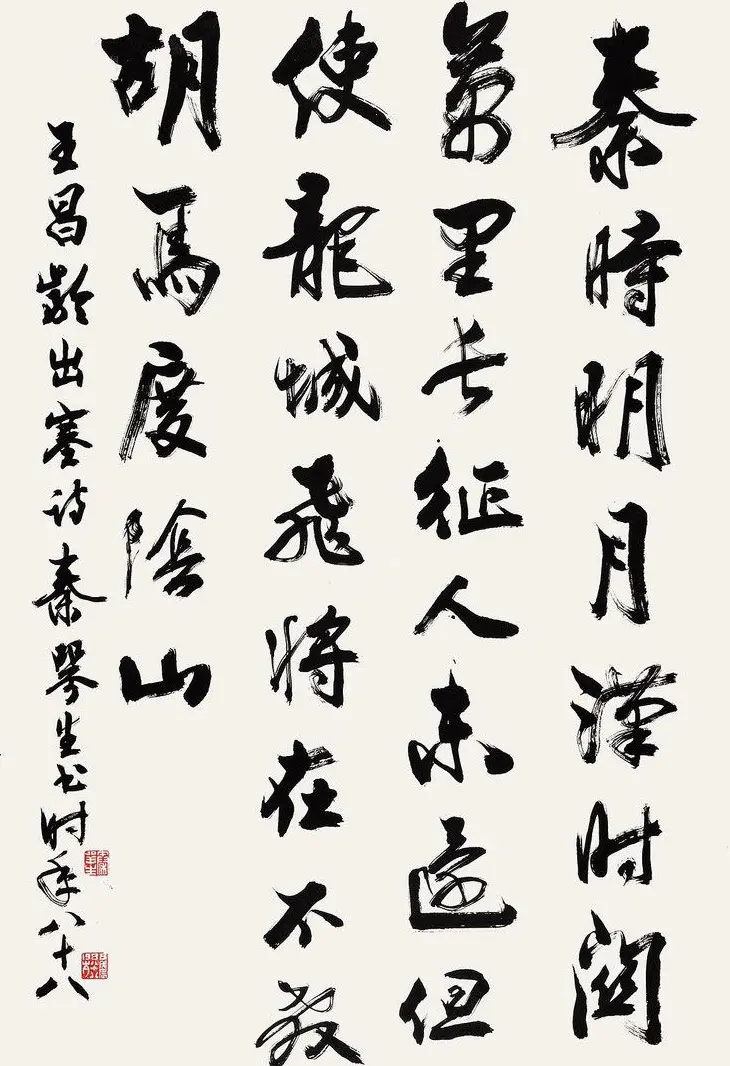 秦時明月漢时關
萬里长征人未還但
使龍城飛將在不教
胡馬度陰山
王昌齡出塞诗秦咢生书时年八十八